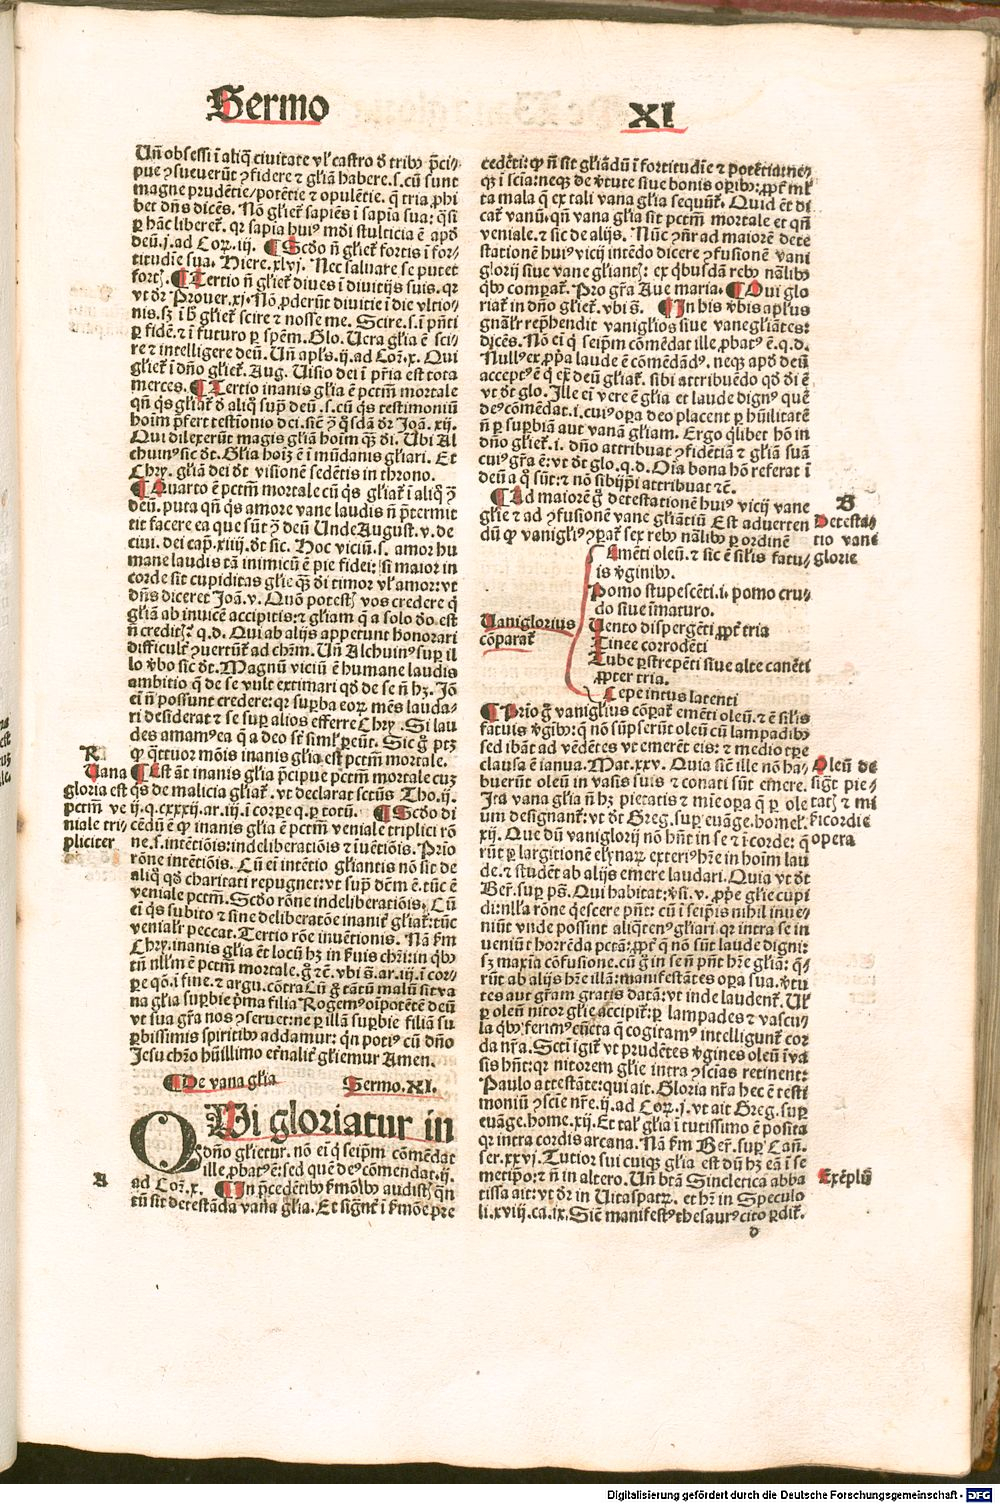 Sermo XI
Uñ obsessi ĩ aliq̃ ciuitate vł castro d' tribꝰ p̃ci-
pue ɔsueuerũt ɔfidere ⁊ gliã habere.s.cũ sunt
magne prudẽtie/potẽtie ⁊ opulẽtie. q̃ tria ꝓhi
bet dñs dicẽs. Nõ gliet᷑ sapiẽs ĩ sapia sua: q̃si
ꝑ hãc liberet᷑. qr sapia huiꝰ mũdi stulticia ẽ apd'
deũ.j.ad Coꝝ.iij. ¶ Scd'o ñ gliet᷑ fortis ĩ for-
titudĩe sua. Hiere.xlvj. Nec saluare se putet
fort᷑. ¶ Tertio ñ gliet᷑ diues ĩ diuitijs suis. qr
vt dr̃ Prouer.xj. Nõ ꝓderũt diuitie ĩ die vltio-
nis. sꝫ ĩ h̃ gliet᷑ scire ⁊ nosse me. Scire.s.ĩ pñti
ꝑ fidẽ.⁊ ĩ futuro ꝑ spẽm. Glo. Uera glia ẽ sci-
re ⁊ intelligere deũ. Uñ apl's.ij.ad Coꝝ.x. Qui
gliet᷑ ĩ dño gliet᷑. Aug. Uisio dei ĩ pr̃ia est tota
merces. ¶ Tertio inanis glia ẽ pctm̃ mortale
qñ q̃s gliat᷑ d' aliq̃ sup̃ deũ .s.cũ q̃s testimoniũ
hoĩm p̃fert testĩonio dei. sic̃ ɔ̃ q̃sdã dr̃ Joã.xij.
Qui dilexerũt magis gliã hoĩm q̃ʒ di. Ubi Al
chuinꝰ sic dt̃. Glia hoĩʒ ẽ ĩ mũdanis gliari. Et
Chry. gliã dei dt̃ visionẽ sedẽtis in throno.
¶ Quarto ẽ pctm̃ mortale cũ q̃s gliat᷑ ĩ aliq̃ ɔ̃
deũ. puta qñ q̃s amore vane laudis ñ p̃termit
tit facere ea que sũt ɔ̃ deũ Unde August.v.de
ciui. dei cap̃.xiiij.dt̃ sic. Hoc viciũ.s. amor hu
mane laudis tã inimicũ ẽ pie fidei: si maior in
corde sit cupiditas glie q̃ʒ di timor vł amor: vt
dñs diceret Joã.v. Quõ potest᷑ vos credere q̃
gliã ab inuicẽ accipitis: ⁊ gliam q̃ a solo d'o est
ñ credit᷑? q.d. Qui ab alijs appetunt honorari
difficult᷑ ɔuertũt᷑ ad chr̃m. Uñ Alchuinꝰ sup̃ il
lo v̾bo sic dt̃. Magnũ viciũ ẽ humane laudis
ambitio q̃ de se vult extimari qd' de se ñ hꝫ. Jõ
ei ñ possunt credere: qr superba eoꝝ mẽs lauda-
ri desiderat ⁊ se sup̃ alios efferre Chry. Si lau
des amamꝰ ea q̃ a deo s̃t siml̃ ꝑeũt. Sic g̃ ptꝫ
ꝙ q̃ttuor mõis inanis glia est pctm̃ mortale.
R
Uana
gloria est
pctm̃ ve
niale tri-
pliciter
¶ Est ãt inanis glia p̃cipue pctm̃ mortale cuʒ
q̃s de malicia gliat᷑. vt declarat sctũs Tho.ij.
ij.q.cxxxij.ar.iij.ĩ corꝑe q.ꝑ totũ. ¶ Scd'o di
cẽdũ ẽ ꝙ inanis glia ẽ pctm̃ veniale triplici rõ
ne.s.intẽtiõis:indeliberatiõis ⁊ ĩuẽtiõis. Prio
rõne intẽtiõis. Cũ ei intẽtio gliantis nõ sit de
aliq̃ qd' charitati repugnet: vt sup̃ dẽm ẽ. tũc ẽ
veniale pctm̃. Scd'o rõne indeliberatiõis. Cũ
ei q̃s subito ⁊ sine deliberatõe inanit᷑ gliat᷑: tũc
venialr̃ peccat. Tertio rõe inuẽtionis. Nã fm̃
Chry. inanis glia ẽt locũ hꝫ in ẽuis chr̃i: in qbꝰ
tñ nllm̃ ẽ pctm̃ mortale. g̃ ⁊c̃. vbi s̃.ar.iij.ĩ cor-
ꝑe qõ.i fine.⁊ argu.cõtra Cũ g̃ tãtũ malũ sit va
na glia superbie p̃ma filia Rogemꝰ oĩpotẽtẽ deũ
vt sua gr̃a nos ɔseruet: ne ꝑ illã supbie filiã su
ꝑbissimis spiritibꝰ addamur: q̃n potiꝰ cũ dño
Jesu chr̃o hũillimo et̃nalit᷑ gliemur Amen.
¶ De vana glia Sermo.XI.
QUi gloriatur in
dño glietur. nõ eĩ q̃ seip̃m cõmẽdat
ille ꝓbatꝰ ẽ: sed quẽ deꝰ cõmendat.ij.
A
ad Coꝝ.x. ¶ In p̃cedẽtibꝰ ẽmõibꝰ audist᷑ q̃n
tũ sit detestãda vana glia. Et signt᷑ ĩ ẽmõe p̃re
cedẽti: ꝙ ñ sit gliãdũ ĩ fortitudĩe ⁊ potẽtia: ne-
q̃ʒ ĩ scia: neqʒ de v̾tute siue bonis oꝑibꝰ: ꝓpt᷑ ml̃
ta mala q̃ ex tali vana glia sequũt᷑. Quid ẽt di
cat᷑ vanũ. qñ vana glia sit pctm̃ mortale et qñ
veniale. ⁊ sic de alijs. Nũc ɔñr ad maiorẽ dete
stationẽ huiꝰ vicij intẽdo dicere ɔfusionẽ vani
glorij siue vane gliant᷑: ex q̃busdã rebꝰ nãlibꝰ
qbꝰ comꝑat᷑. Pro gr̃a Aue maria. ¶ Qui glo
riat᷑ in dño gliet᷑. vbi s̃. ¶ In his v̾bis apl'us
gnãlr̃ rep̃hendit vaniglios siue vanegliãtes:
dicẽs. Nõ eĩ q̃ seip̃m cõmẽdat ille ꝓbatꝰ ẽ.q.d.
Nullꝰ ex ꝓpria laude ẽ cõmẽdãdꝰ. neqʒ apd' deũ
acceptꝰ ẽ q̃ cõtra deũ gliat᷑. sibi attribuẽdo qd' di ẽ
vt dt̃ glo. Ille ei vere ẽ glia et laude dignꝰ quẽ
deꝰ cõmẽdat.i.cuiꝰ oꝑa deo placent ꝑ hũilitatẽ
ñ ꝑ suꝑbiã aut vanã gliam. Ergo q̃libet hõ in
dño gliet᷑.i. dño attribuat ɔfidẽtiã ⁊ gliã suã
cuiꝰ gr̃a ẽ: vt dt̃ glo.q.d. Oĩa bona hõ referat ĩ
deũ a q̃ sũt: ⁊ nõ sibijp̃i attribuat ⁊c̃.
¶ Ad maiorẽ g̃ detestationẽ huiꝰ vicij vane
glie ⁊ ad ɔfusionẽ vane gliãtiũ Est aduerten
dũ ꝙ vanigliꝰ ɔꝑat᷑ sex rebꝰ nãlibꝰ ꝑ ordinẽ
B
Detesta-
tio vane
glorie
Uaniglorius
cõparat᷑
Emẽti oleũ. ⁊ sic ẽ silis fatu-
is v̾ginibꝰ.
Pomo stupescẽti.i. pomo cru-
do siue ĩmaturo.
Uento dispergẽti ꝓpt᷑ tria
Tinee corrodẽti
Tube ꝑstrepẽti siue alte canẽti
ꝓpter tria.
Cepe intus latenti
¶ Prio g̃ vanigliꝰ cõꝑat᷑ emẽti oleũ. ⁊ ẽ silis
fatuis v̾gibꝰ: q̃ nõ sũpserũt oleũ cũ lampadibꝰ
sed ibãt ad vẽdẽtes vt emerẽt eis: ⁊ medio tꝑe
clausa ẽ ianua. Mat.xxv. Quia sic̃ ille nõ ha-
buerũt oleũ in vasis suis ⁊ conati sũt emere.
Ita vana glia ñ hꝫ pietatis ⁊ mĩe oꝑa q̃ ꝑ ole
um designant᷑: vt dt̃ Greg. sup̃ euãge. homel᷑.
xij. Que dũ vaniglorij nõ hñt in se ⁊ ĩ corde: q̃
rũt ꝑ largitionẽ elynaꝝ exteriꝰ hr̃e in hoĩm lau
de. ⁊ studẽt ab alijs emere laudari. Quia vt dt̃
Ber̃. sup̃ ps̃. Qui habitat: v̾si.v. ꝓp̃e glie cupi
di: nlla rõne q̃escere pñt: cũ ĩ seip̃is nihil inue-
niũt vnde possint aliq̃tenꝰ gliari qr intra se in
ueniũt horrẽda pctã: ꝓpt᷑ q̃ nõ sũt laude digni:
sꝫ maxĩa cõfusione. cũ g̃ in se ñ pñt hr̃e gliã: q̃-
rũt ab alijs hr̃e illã: manifestãtes oꝑa sua. v̾tu
tes aut gr̃am gratis datã: vt inde laudent᷑. Ul̃
ꝑ oleũ nitor glie accipit᷑: ꝑ lampades ⁊ vascu-
la qbꝰ ferimꝰ cũcta q̃ cogitamꝰ intelligunt᷑ cor
da nr̃a. Sctĩ igit᷑ vt prudẽtes v̾gines oleũ ĩ va
sis hñt: qr nitorem glie intra ɔscias retinent:
Paulo attestãte: qui ait. Gloria nr̃a hec ẽ testi
moniũ ɔscie nr̃e.ij.ad Coꝝ.j. vt ait Greg. sup̃
euãge. home.xij. Et tal᷑ glia ĩ tutissimo ẽ posita
qr intra cordis arcana. Nã fm̃ Ber̃. sup̃ Cañ.
ser.xxvj. Tutior sui cuiqʒ glia est dũ hꝫ eã ĩ se
metip̃o: ⁊ ñ in altero. Uñ btã Sincletica abba
tissa ait: vt dr̃ in Uitaspatꝝ. et hr̃ in Speculo
li.xviij.ca.ix. Sic̃ manifestꝰ thesaurꝰ cito ꝑdit᷑.
Oleũ de
signt᷑ pie-
tat᷑ ⁊ mi
sericordie
opera
Exẽplũ
d
Digitalisierung gefördert durch die Deutsche Forschungsgemeinschaft - DFG